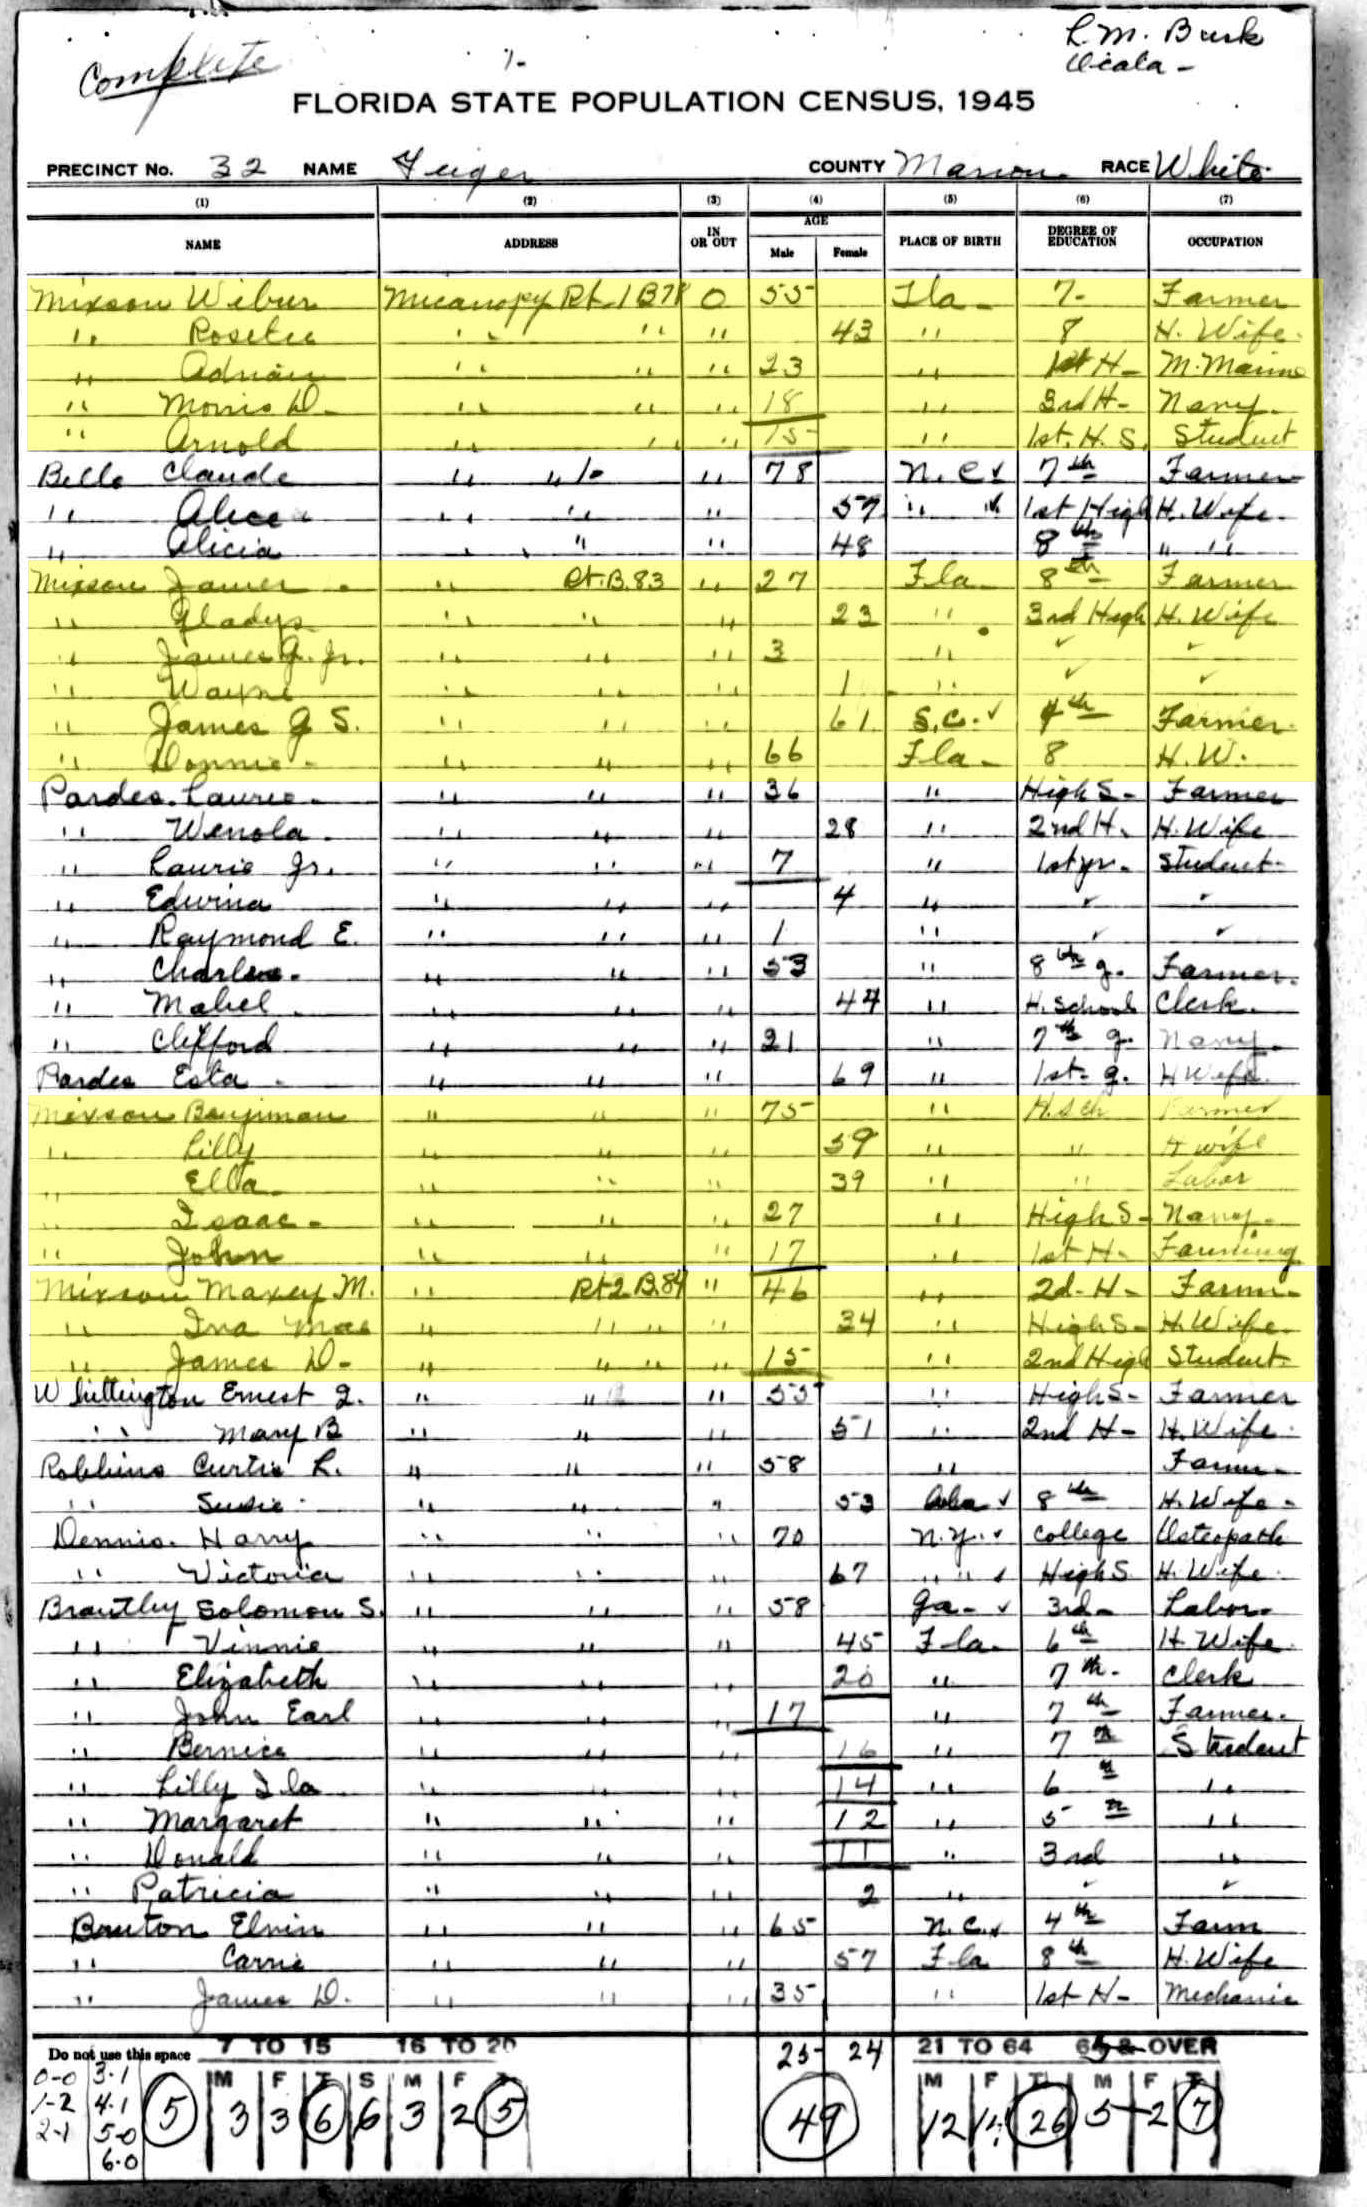 Complete
1-
L. M. Burk
Ocala -
FLORIDA STATE POPULATION CENSUS, 1945
PRECINCT No. 32 NAME Feiger COUNTY Marion RACE White
(1) (2) (3) (4) (5) (6) (7)
NAME ADDRESS IN OR OUT AGE Male Female PLACE OF BIRTH DEGREE OF EDUCATION OCCUPATION
Mixson Wibur Micanopy Rt. 1 B 78 O 55 Fla - 7 - Farmer
" Roselee " " " 43 " 8 H. Wife.
" Adrian " " " 23 " 1st H - M. Marine
" Morris D. " " " 18 " 3rd H - Navy.
" Arnold " " " 15 " 1st. H. S. Student
Bello Claude " " " 78 N. C ✓ 7th Farmer
" Alice " " " 57 " ✓ 1st High H. Wife.
" Alicia " " " 48 8th " "
Mixson James . " Rt. B. 83 " 27 Fla 8th Farmer
" Gladys " " " 23 " 3rd High H. Wife
" James G. Jr. " " " 3 " ✓ ✓
" Wayne " " " 1 " ✓ ✓
" James G S. " " " 61 S. C. ✓ 4th Farmer.
" Donnie - " " " 66 Fla - 8 H. W.
Pardee. Laurie - " " " 36 " High S - Farmer
" Wenola . " " " 28 " 2nd H. H. Wife
" Laurie Jr. " " " 7 " 1st yr. Student.
" Edwina " " " 4 " ✓ ✓
" Raymond E. " " " 1 " ✓ ✓
" Charles - " " " 53 " 8th g. Farmer.
" Mabel . " " " 44 " H. School Clerk.
" Clifford " " " 21 " 7th g. Navy.
Pardee Esta - " " " 69 " 1st. g. H Wife.
Mixson Benjiman " " " 75 " H. Sch Farmer
" Lilly " " " 59 " " H wife
" Ella - " " " 39 " " Labor
" Isaac - " " " 27 " High S - Navy.
" John " " " 17 " 1st H - Farming
Mixson Maxey M. " Rt 2 B. 84 " 46 " 2d - H - Farm -
" Ina Mae " " " " 34 " High S - H. Wife.
" James D - " " " " 15 " 2nd High Student.
Whittington Ernest J. " " " 55 " High S - Farmer
" Mary B " " " 51 " 2nd H - H. Wife.
Robbins Curtis L. " " " 58 " Farm -
" Susie . " " " 53 Ala ✓ 8th H. Wife -
Dennis. Harry " " " 70 N. Y. ✓ College Osteopath
" Victoria " " " 67 " " ✓ High S H. Wife.
Brantley Solomon S. " " " 58 Ga - ✓ 3rd - Labor -
" Vinnie " " " 45 Fla - 6th H Wife.
" Elizabeth " " " 20 " 7th. Clerk
" John Earl " " " 17 " 7th Farmer.
" Bernice " " " 16 " 7th Student
" Lilly Ila " " " 14 " 6th "
" Margaret " " " 12 " 5th "
" Donald " " " 11 " 3rd "
" Patricia " " " 2 " ✓ ✓
Bruton Elvin " " " 65 N. C. ✓ 4th Farm
" Carrie " " " 57 Fla 8th H. Wife
" James D. " " " 35 " 1st H - Mechanic
Do not use this space 7 TO 15 16 TO 20 25 24 21 TO 64 65 & OVER
M F T S M F T M F T M F T
0-0 3-1
1-2 4-1 5 3 3 6 6 3 2 5 49 12 14 26 5 2 7
2-1 5-0
6-0